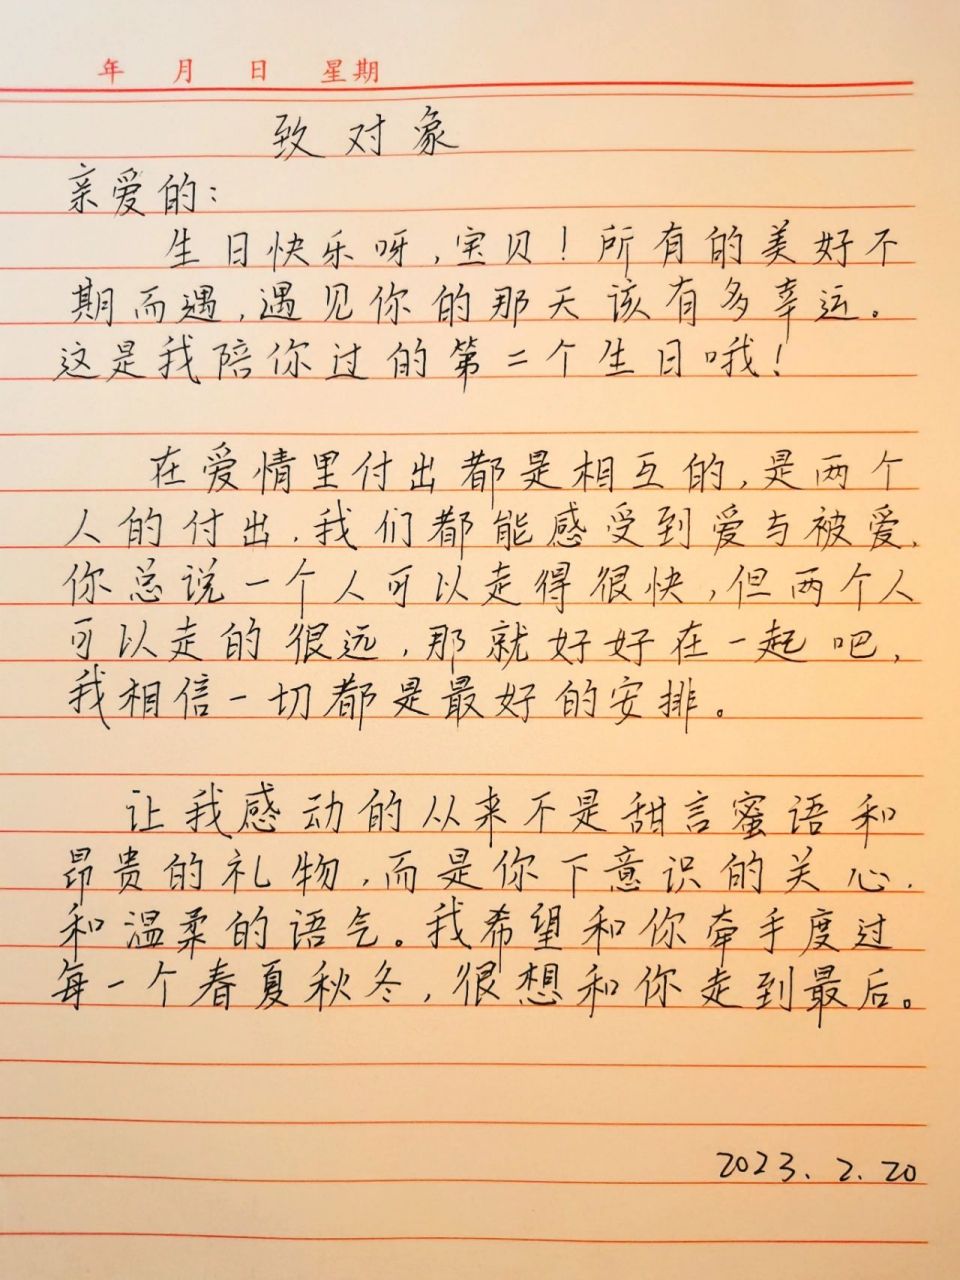 年 月 日 星期
致对象
亲爱的：
生日快乐呀，宝贝！所有的美好不
期而遇，遇见你的那天该有多幸运。
这是我陪你过的第二个生日哦！
在爱情里付出都是相互的，是两个
人的付出，我们都能感受到爱与被爱，
你总说一个人可以走得很快，但两个人
可以走的很远，那就好好在一起吧，
我相信一切都是最好的安排。
让我感动的从来不是甜言蜜语和
昂贵的礼物，而是你下意识的关心，
和温柔的语气。我希望和你牵手度过
每一个春夏秋冬，很想和你走到最后。
2023.2.20